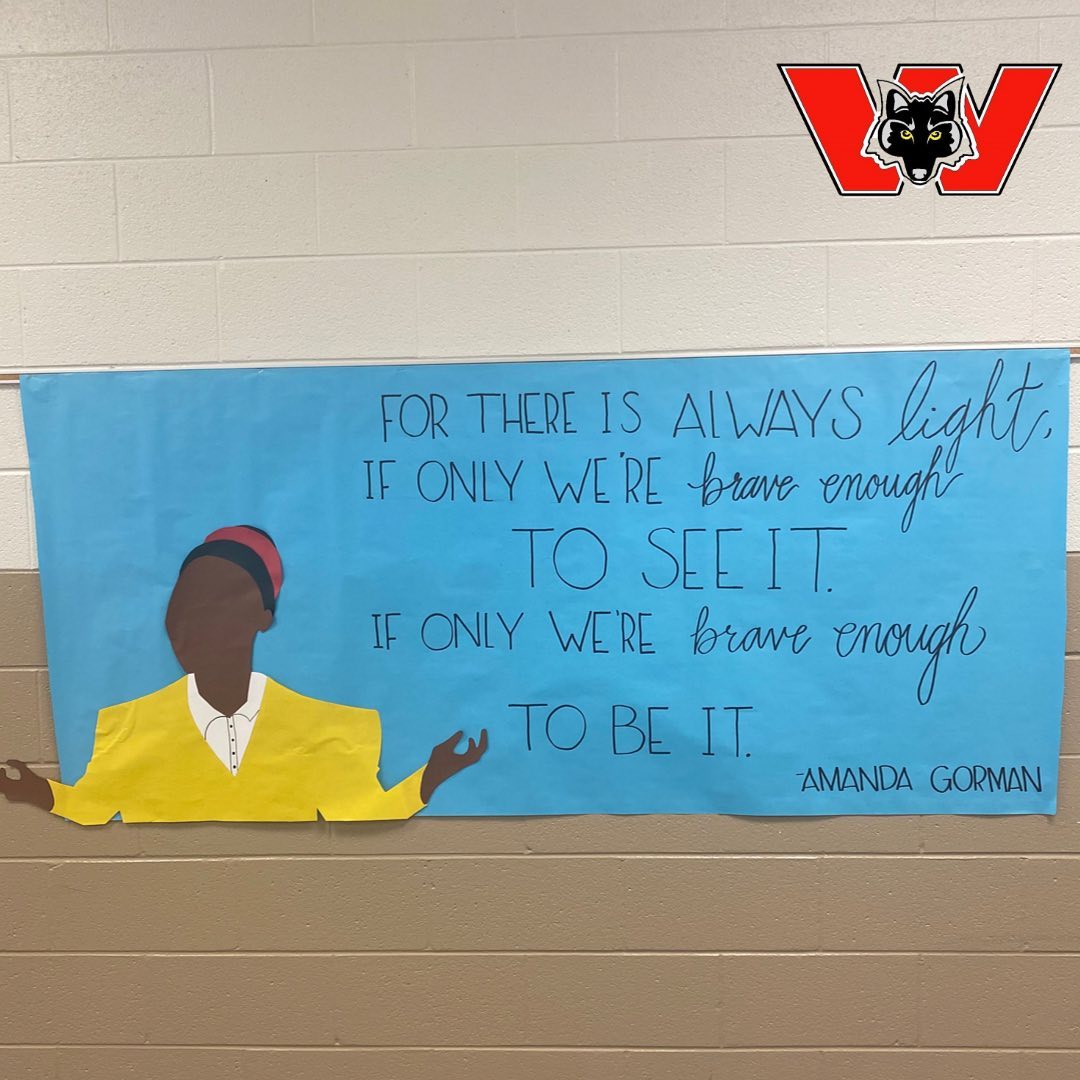 W
FOR THERE IS ALWAYS light,
IF ONLY WE'RE brave enough
TO SEE IT.
IF ONLY WE'RE brave enough
TO BE IT.
-AMANDA GORMAN